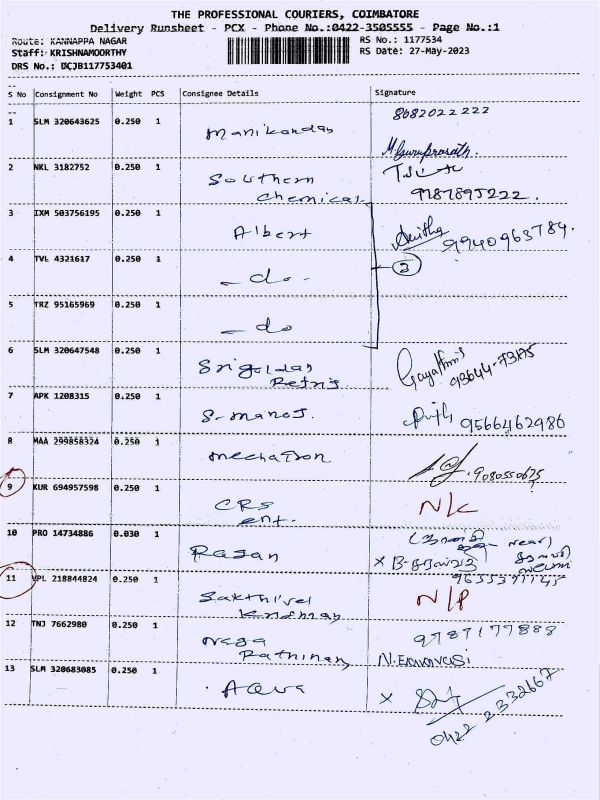 THE PROFESSIONAL COURIERS, COIMBATORE
Delivery Runsheet - PCX - Phone No.:0422-3505555 - Page No.:1
Route: KANNAPPA NAGAR RS No.: 1177534
Staff: KRISHNAMOORTHY RS Date: 27-May-2023
DRS No.: BCJB117753401
S No Consignment No Weight PCS Consignee Details Signature
1 SLM 320643625 0.250 1 Manikandan 8682022222
M. Guruprasath.
2 NKL 3182752 0.250 1 Southern
Chemical 9787895222.
3 IXM 503756195 0.250 1 Albert Anitha 9940963789.
4 TVL 4321617 0.250 1 - do - 3
5 TRZ 95165969 0.250 1 - do
6 SLM 320647548 0.250 1 Srigoldan Gayathri
93644-73175
7 APK 1208315 0.250 1 S-manoj. 9566462986
8 MAA 299858324 0.250 1 mechatron 9080550675
9 KUR 694957598 0.250 1 CRS N/C
ent.
10 PRO 14734886 0.030 1 Rajan near
11 VPL 218844824 0.250 1 Sakthivel N/P
12 TNJ 7662980 0.250 1 Naga 9787177888
Rathinam
13 SLM 320683085 0.250 1 Aqua X
0422 2332667